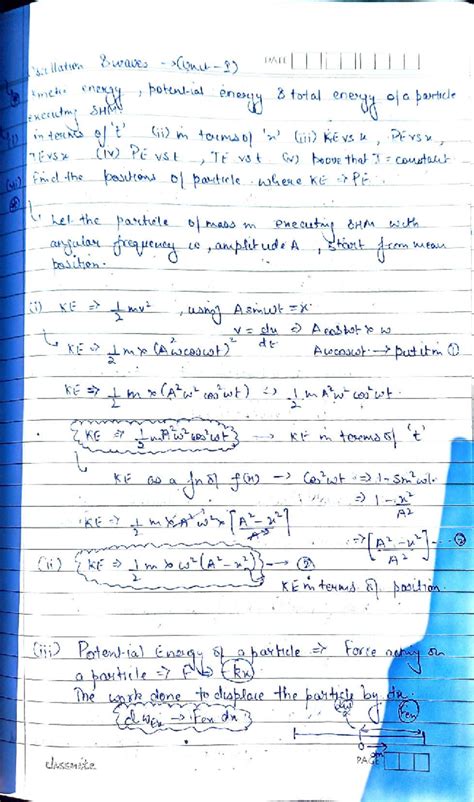 Oscillation & waves → (Unit - I)
DATE
Kinetic energy, potential energy & total energy of a particle
executing SHM
(i) in terms of 't' (ii) in terms of 'x' (iii) KE vs x, PE vs x,
TE vs x (iv) PE vs t, TE vs t (v) Prove that T = constant
(vi) Find the positions of particle where KE => PE.
Let the particle of mass m executing SHM with
angular frequency ω, amplitude A, start from mean
position.
(i) KE => 1/2 mv², using A sin ωt = x
v = dx/dt => A cos ωt × ω
KE => 1/2 m × (Aω cos ωt)² Aω cos ωt → put it in ①
KE => 1/2 m × (A²ω² cos² ωt) => 1/2 m A²ω² cos² ωt.
{KE => 1/2 mA²ω² cos² ωt} → KE in terms of 't'
KE as a fn of f(x) → cos² ωt => 1 - sin² ωt
=> 1 - x²/A²
KE => 1/2 m × A² ω² × [A² - x²/A²] => [A² - x²/A²] --- ②
(ii) {KE => 1/2 m × ω² (A² - x²)} → ③
KE in terms of position.
(iii) Potential Energy of a particle => Force acting on
a particle => F kx
The work done to displace the particle by dx.
{dw_Ex → F_en dx} F_en
classmate PAGE